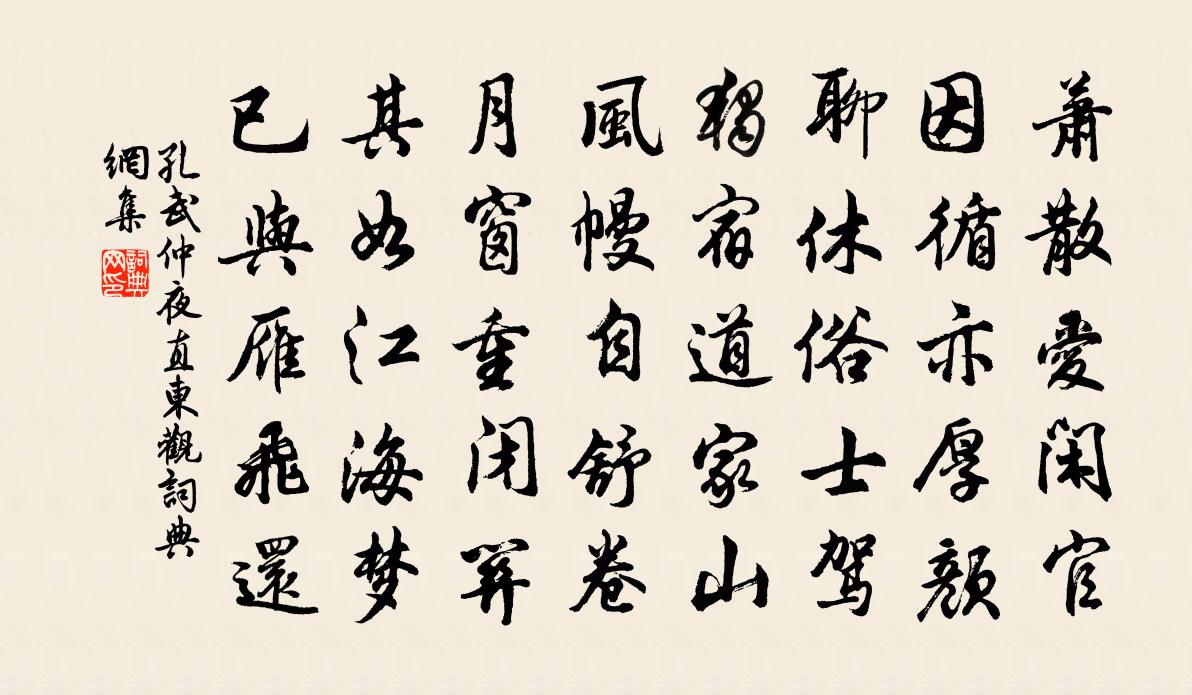 蕭散愛閑官
因循亦厚顏
聊休俗士駕
獨宿道家山
風幔自舒卷
月窗重閉關
其如江海梦
已與雁飛還
孔武仲夜直東觀詞典
網集
詞典网印